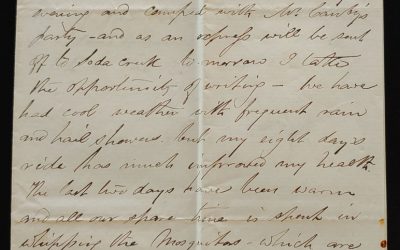 evening and camped with Mr.
party - and as an express will be sent
off to Soda Creek to morrow I take
the opportunity of writing - We have
had cool weather with frequent rain
and hail showers. but my eight days
ride has much improved my health
The last two days have been warm
and all our spare time is spent in
whipping the Mosquitos - which are